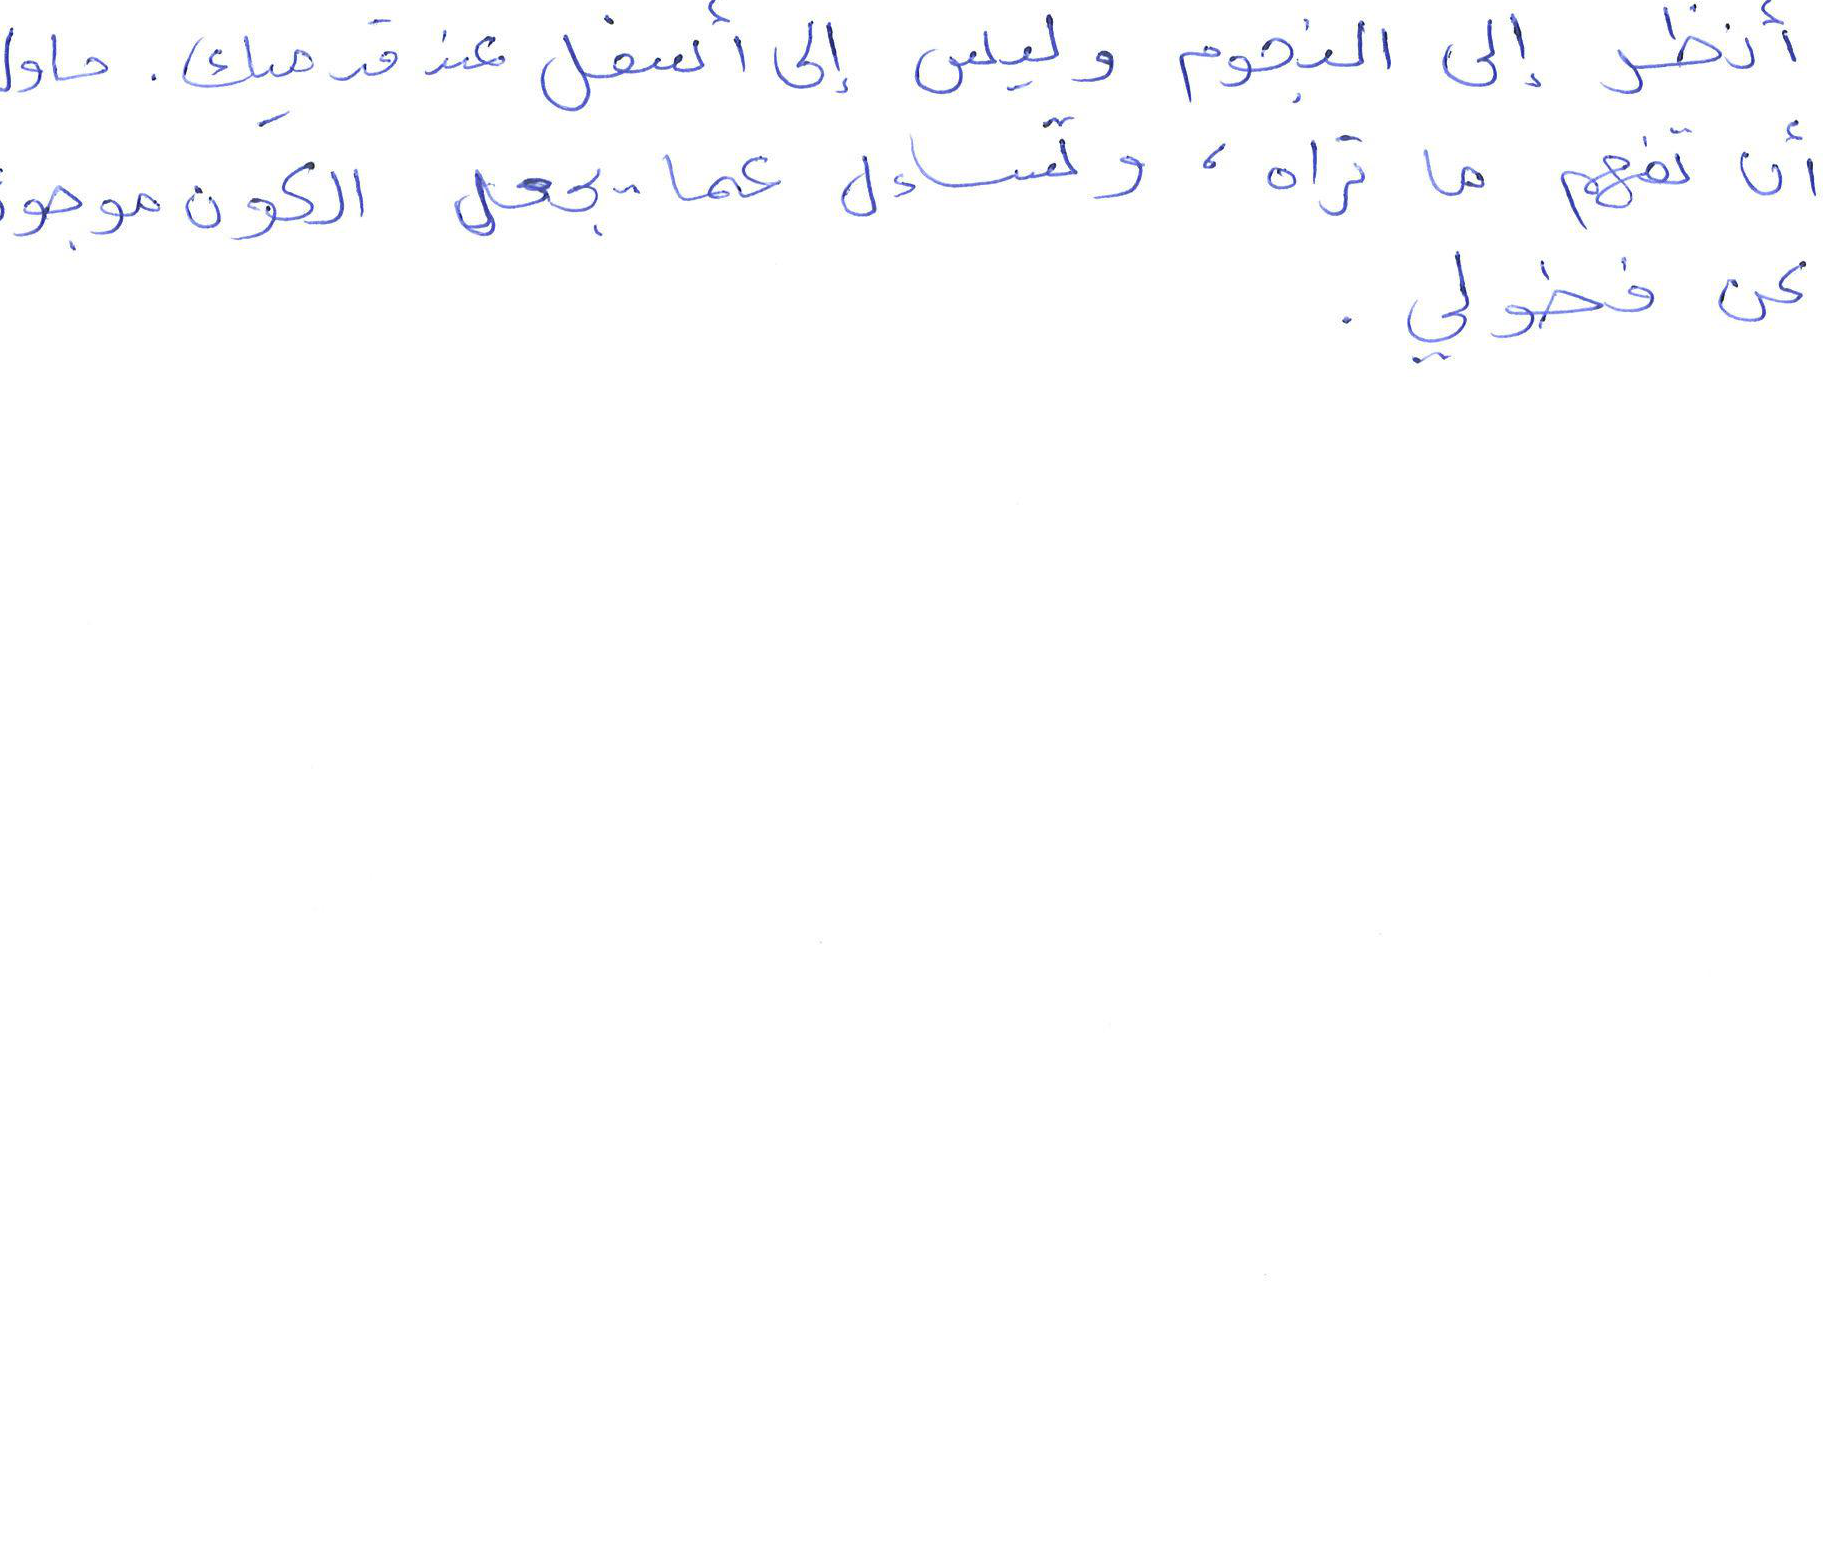 أنظر إلى النجوم وليس إلى أسفل عند قدميك. حاول
أن تفهم ما تراه، وتساءل عما يجعل الكون موجود
عن فضولي.